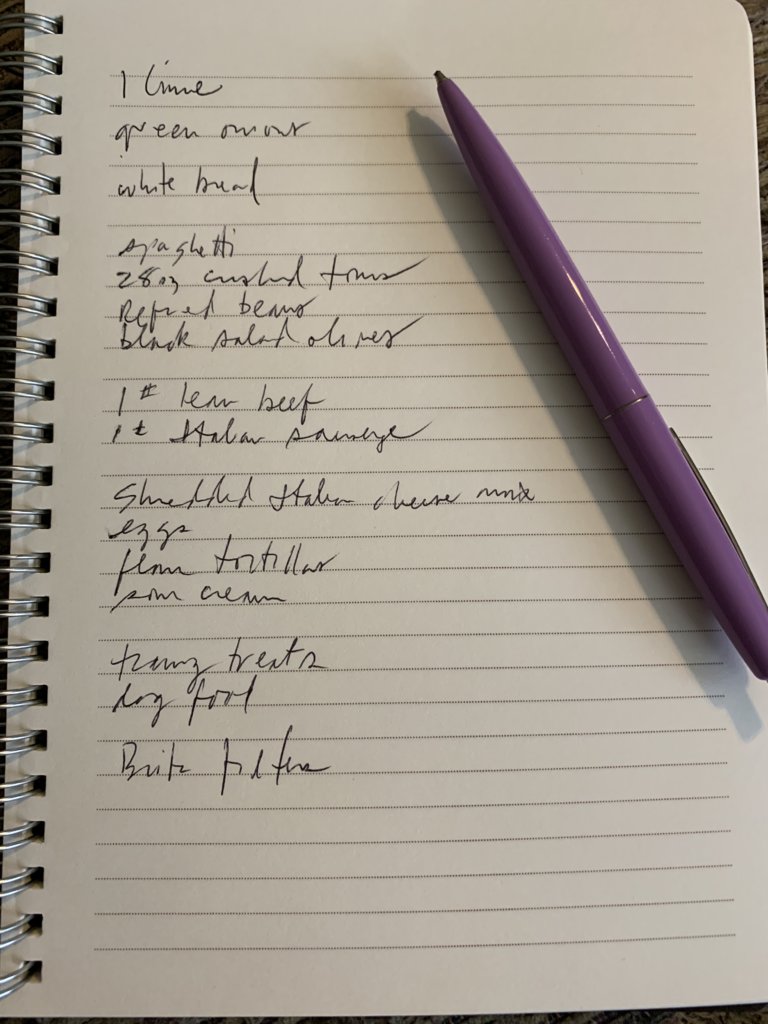 1 lime
green onions
white bread
spaghetti
28oz crushed toms
Refried beans
black salad olives
1# lean beef
1# Italian sausage
Shredded Italian cheese mix
eggs
flour tortillas
sour cream
training treats
dog food
Brita filters